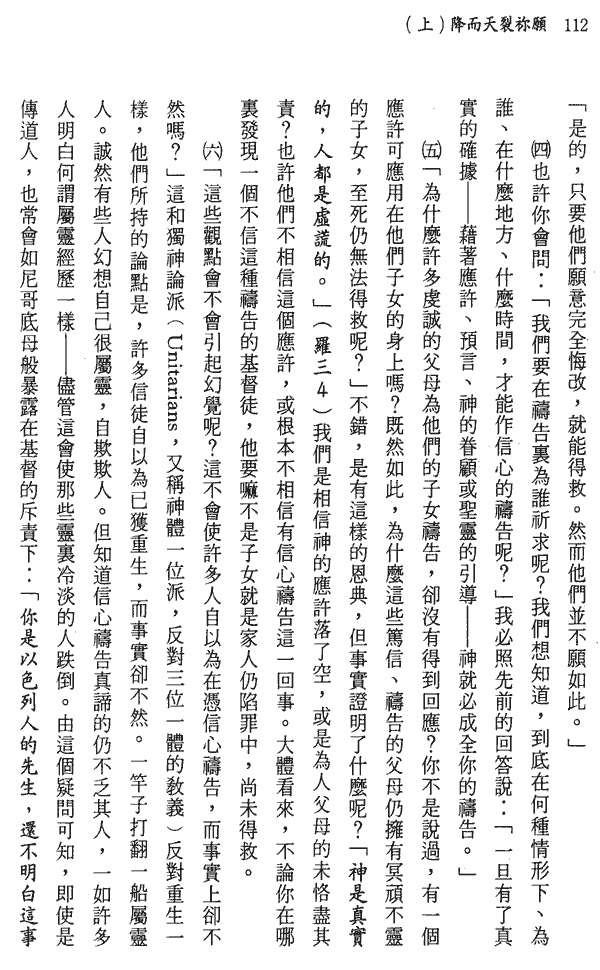 112　願祢裂天而降（上）
「是的，只要他們願意完全悔改，就能得救。然而他們並不願如此。」
㈣也許你會問：「我們要在禱告裏為誰祈求呢？我們想知道，到底在何種情形下、為
誰、在什麼地方、什麼時間，才能作信心的禱告呢？」我必照先前的回答說：「一旦有了真
實的確據——藉著應許、預言、神的眷顧或聖靈的引導——神就必成全你的禱告。」
㈤「為什麼許多虔誠的父母為他們的子女禱告，卻沒有得到回應？你不是說過，有一個
應許可應用在他們子女的身上嗎？既然如此，為什麼這些篤信、禱告的父母仍擁有冥頑不靈
的子女，至死仍無法得救呢？」不錯，是有這樣的恩典，但事實證明了什麼呢？「神是真實
的，人都是虛謊的。」（羅三4）我們是相信神的應許落了空，或是為人父母的未恪盡其
責？也許他們不相信這個應許，或根本不相信有信心禱告這一回事。大體看來，不論你在哪
裏發現一個不信這種禱告的基督徒，他要嘛不是子女就是家人仍陷罪中，尚未得救。
㈥「這些觀點會不會引起幻覺呢？這不會使許多人自以為在憑信心禱告，而事實上卻不
然嗎？」這和獨神論派（Unitarians，又稱神體一位派，反對三位一體的教義）反對重生一
樣，他們所持的論點是，許多信徒自以為已獲重生，而事實卻不然。一竿子打翻一船屬靈
人。誠然有些人幻想自己很屬靈，自欺欺人。但知道信心禱告真諦的仍不乏其人，一如許多
人明白何謂屬靈經歷一樣——儘管這會使那些靈裏冷淡的人跌倒。由這個疑問可知，即使是
傳道人，也常會如尼哥底母般暴露在基督的斥責下：「你是以色列人的先生，還不明白這事